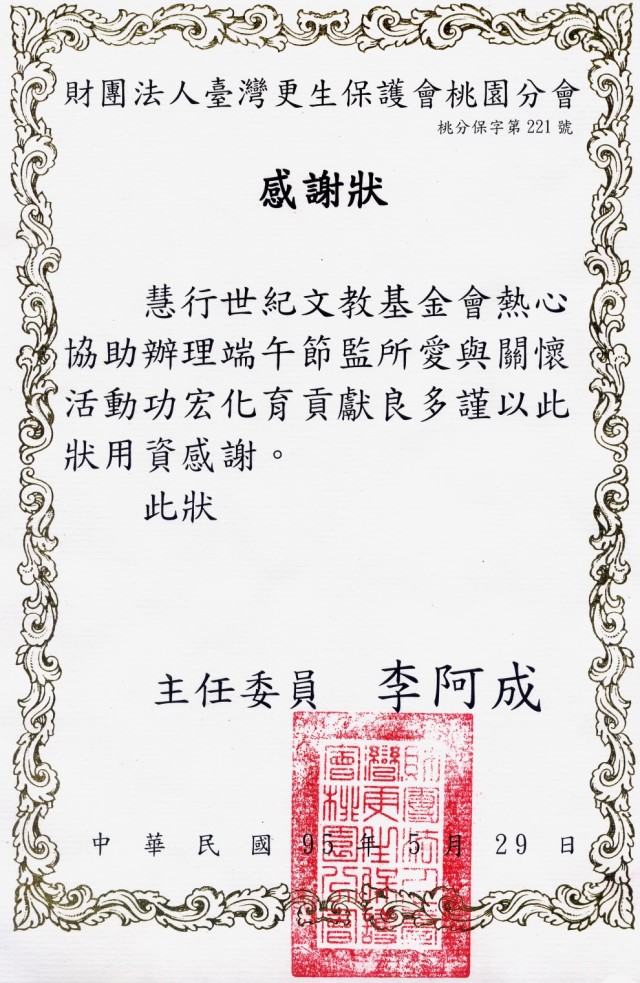 財團法人臺灣更生保護會桃園分會
桃分保字第221號
感謝狀
慧行世紀文教基金會熱心
協助辦理端午節監所愛與關懷
活動功宏化育貢獻良多謹以此
狀用資感謝。
此狀
主任委員 李阿成
中華民國95年5月29日
財團法人臺
灣更生保護
會桃園分會